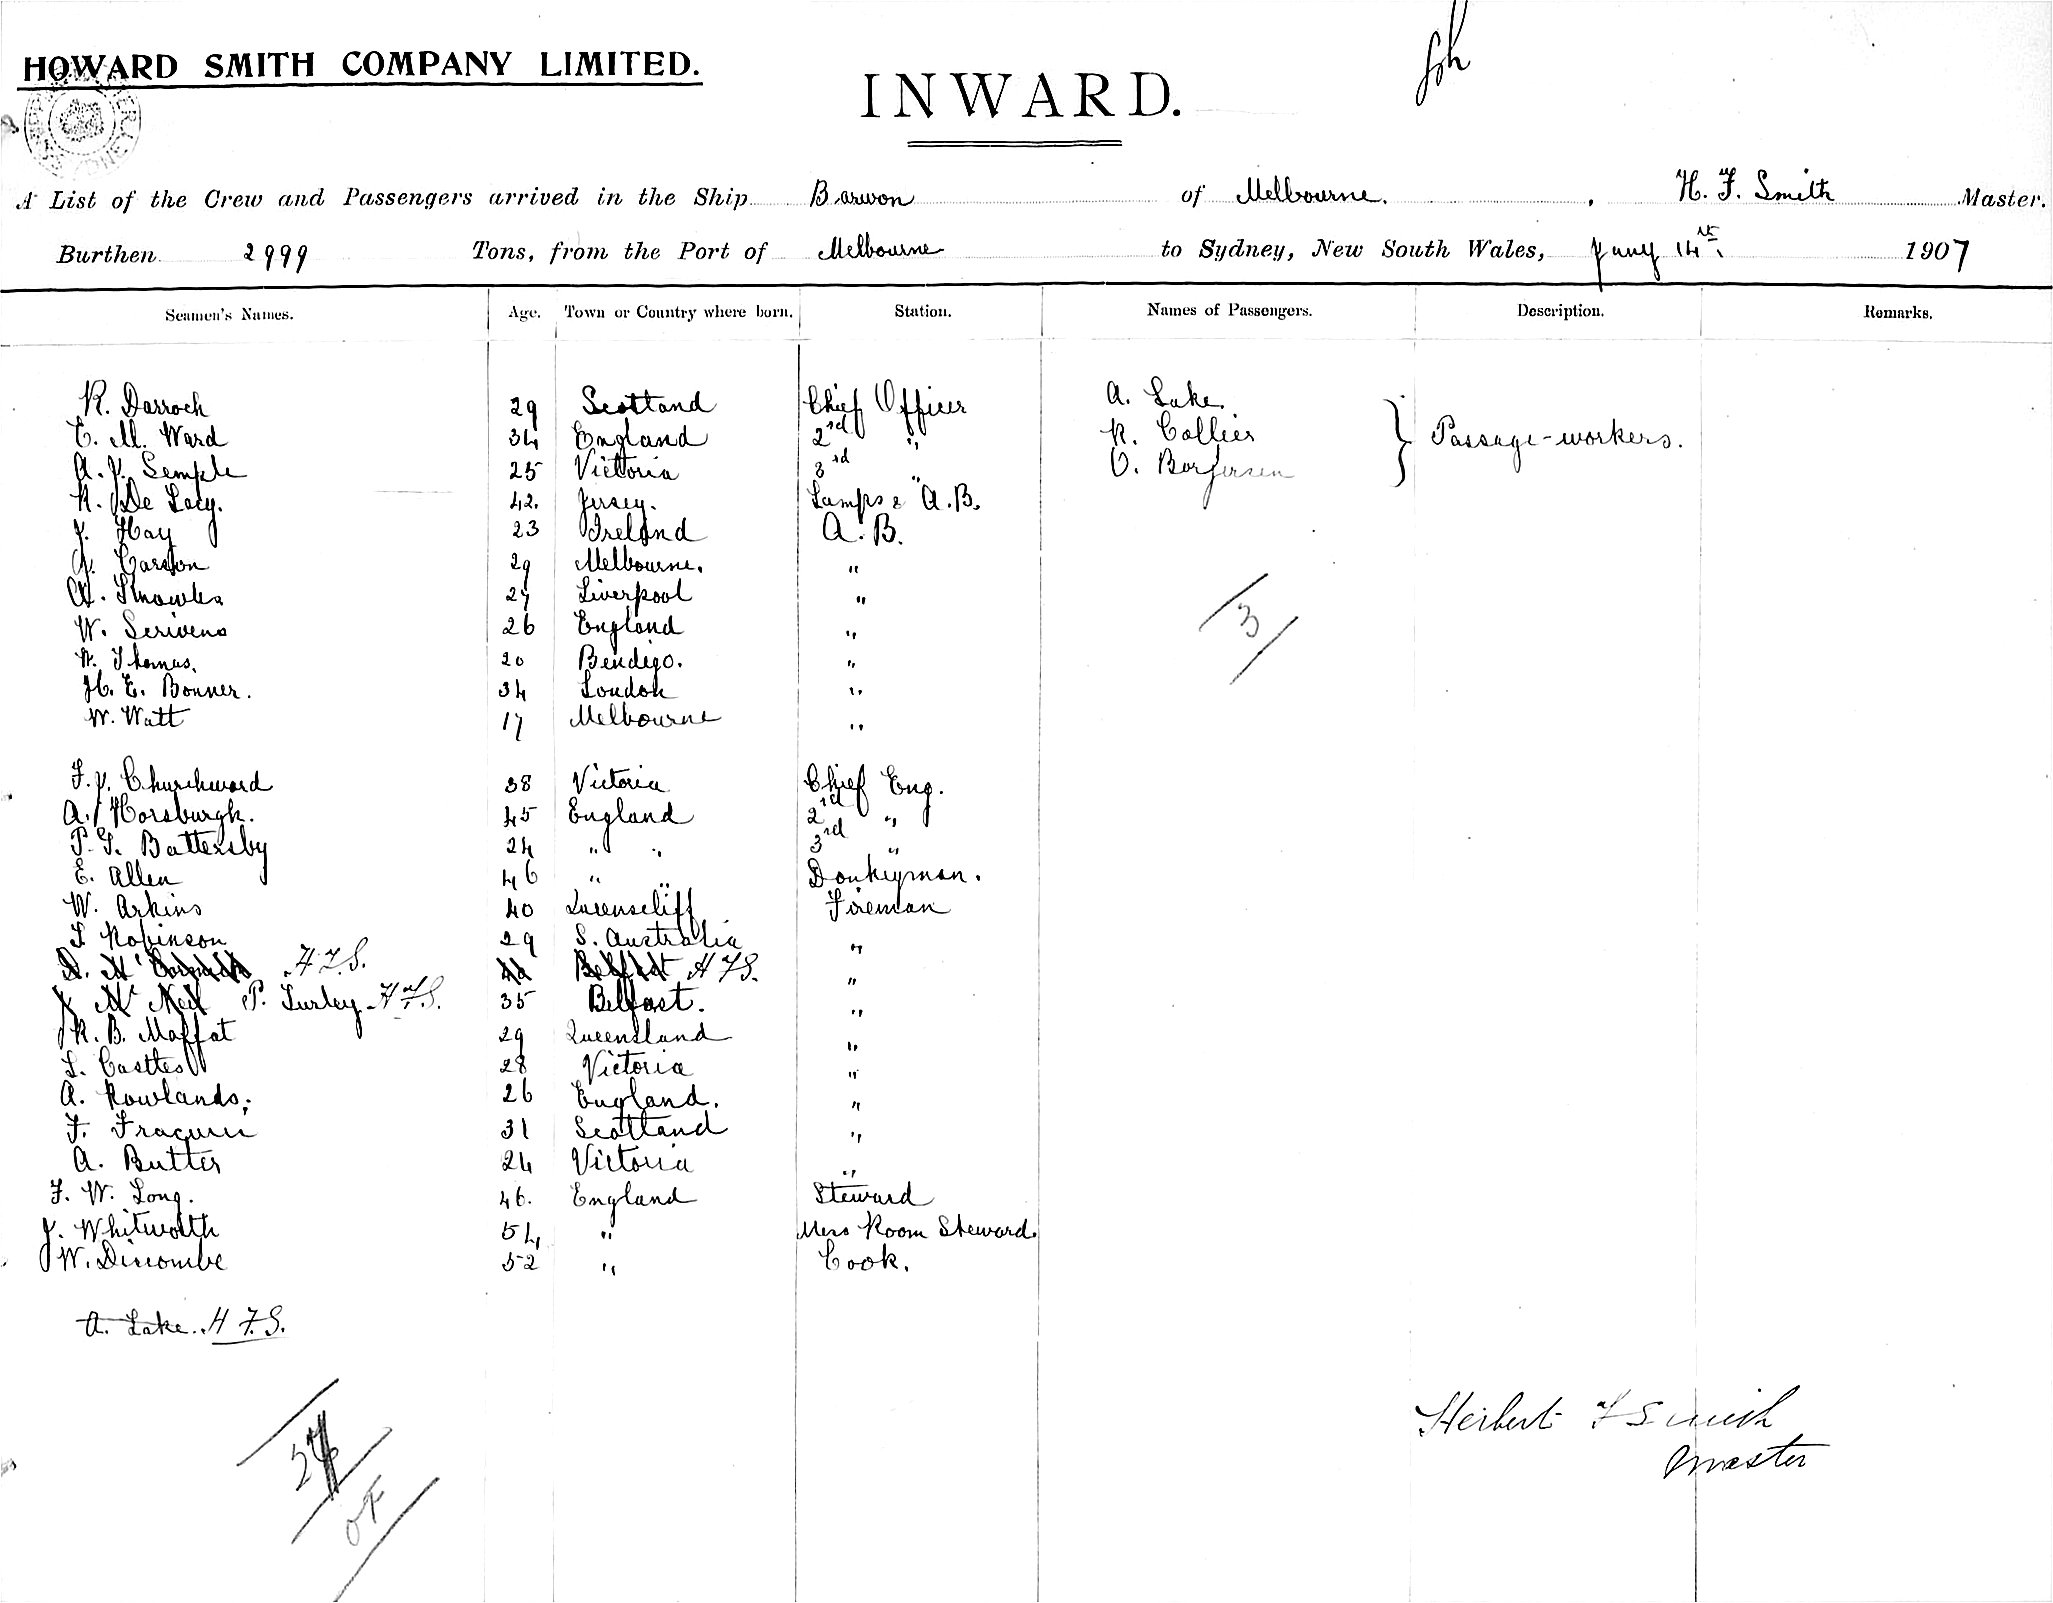 HOWARD SMITH COMPANY LIMITED.
INWARD.
A List of the Crew and Passengers arrived in the Ship Barwon of Melbourne. , H. F. Smith Master.
Burthen 2999 Tons, from the Port of Melbourne to Sydney, New South Wales, Jany 14th. 1907
Seamen's Names. Age. Town or Country where born. Station. Names of Passengers. Description. Remarks.
R. Darroch 29 Scotland Chief Officer A. Lake.
E. M. Ward 34 England 2rd " R. Collier Passage-workers.
A. J. Semple 25 Victoria 3rd " O. Borjersen
R. De Lacy. 42. Jersey. Lamps & A.B.
J. Hay 23 Ireland A.B.
J. Carson 29 Melbourne. "
A. Knowles 27 Liverpool "
W. Scrivens 26 England "
W. Thomas. 20 Bendigo. "
H. E. Bonner. 34 London "
W. Watt 17 Melbourne "
3
F. J. Churchward 38 Victoria Chief Eng.
A. Horsburgh. 45 England 2rd "
P. G. Battersby 24 " " 3rd "
E. Allen 46 " " Donkeyman.
W. Arkins 40 Queenscliff Fireman
S. Robinson 29 S. Australia "
D. Mc Cormack H.F.S. 42 Belfast H F S. "
J. Mc Neil P. Turley H.F.S. 35 Belfast. "
R. B. Moffat 29 Queensland "
S. Castles 28 Victoria "
A. Rowlands. 26 England. "
F. 31 Scotland "
A. Butter 24 Victoria "
F. W. Long. 46. England Steward
J. Whitworth 54 " Mess Room Steward.
W. Discombe 52 " Cook.
A. Lake. H F.S.
Herbert F Smith
Master